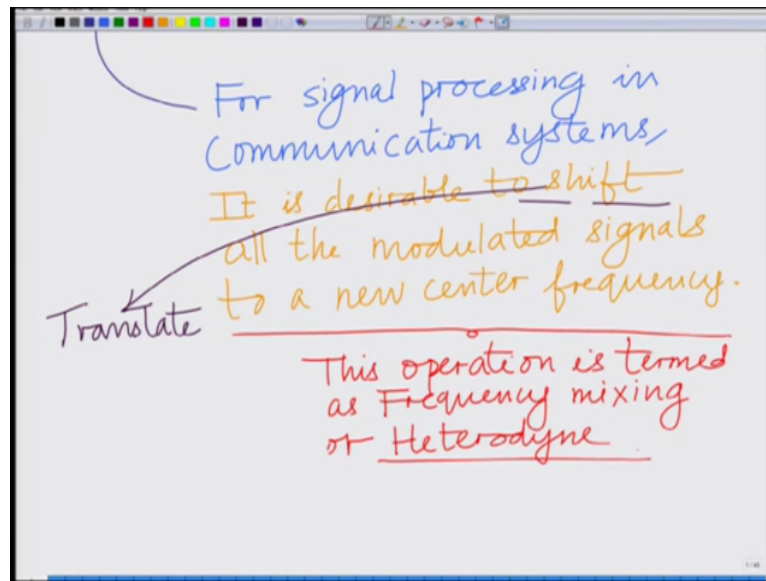 For signal processing in
Communication systems,
It is desirable to shift
all the modulated signals
to a new center frequency.
Translate
This operation is termed
as Frequency mixing
or Heterodyne